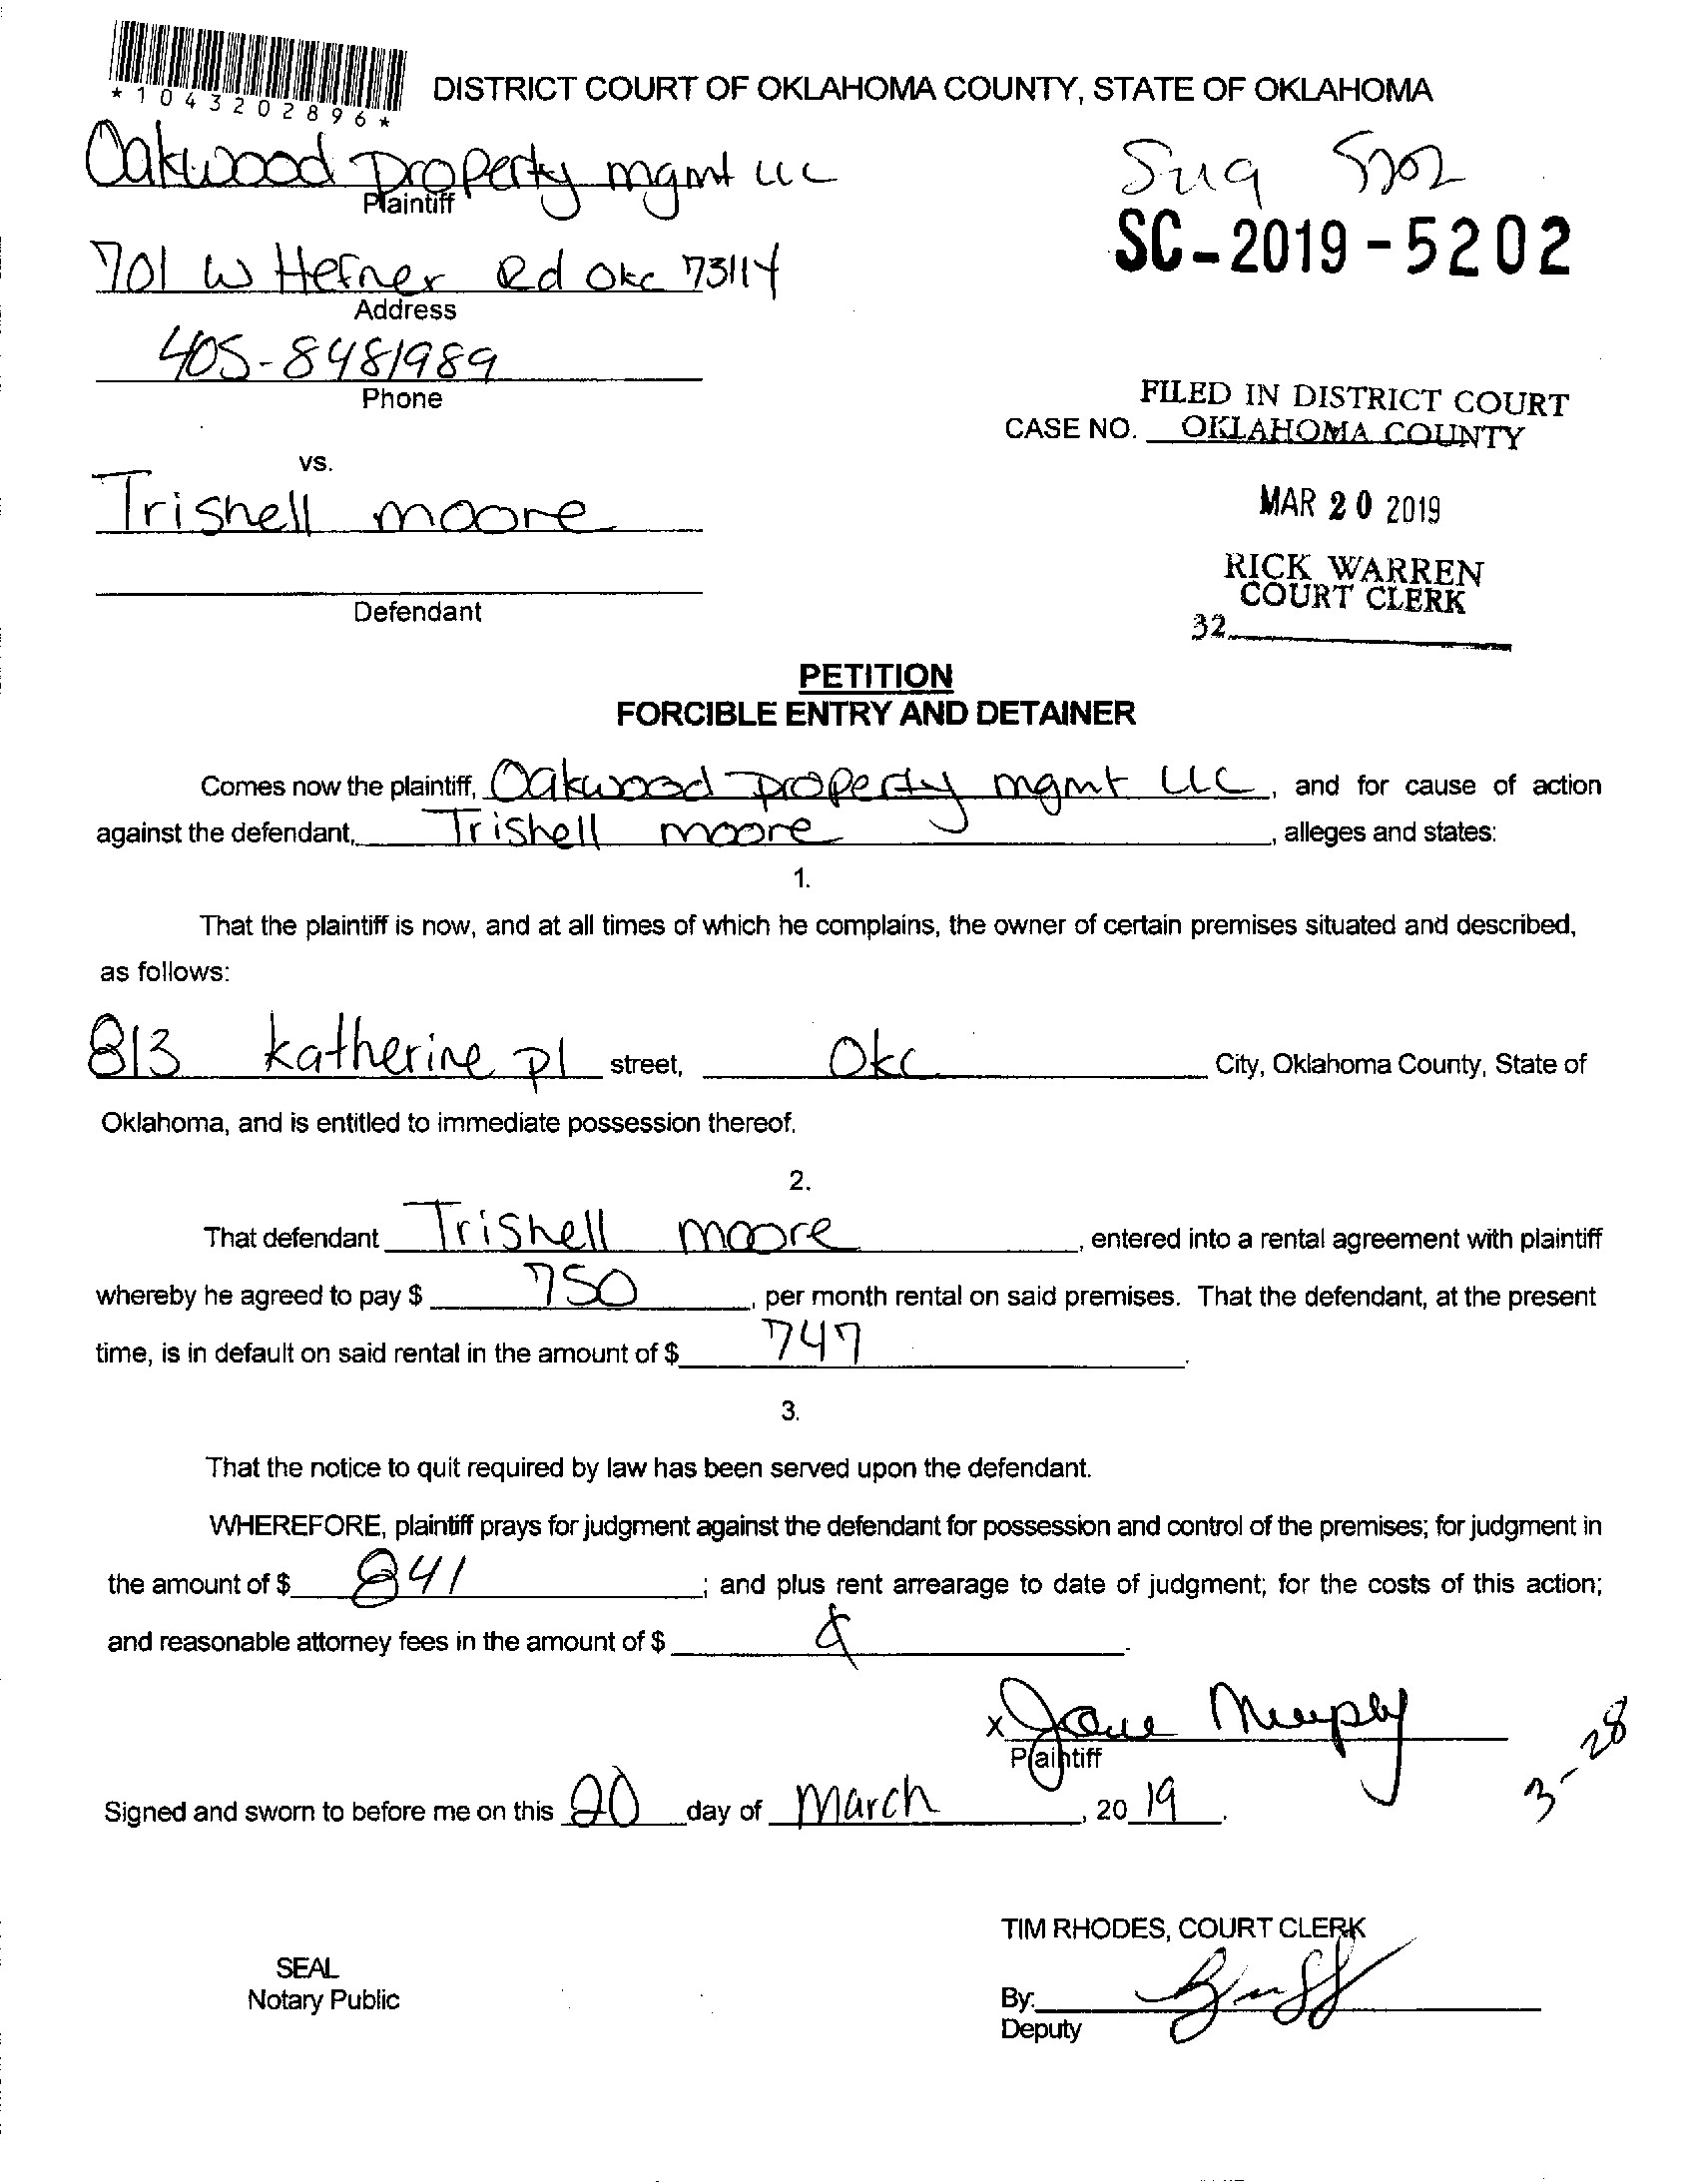 *1043202896*
DISTRICT COURT OF OKLAHOMA COUNTY, STATE OF OKLAHOMA
Oakwood Property mgmt LLC
Plaintiff
5202
SC-2019-5202
701 W Hefner Rd Okc 73114
Address
405-8481989
Phone
FILED IN DISTRICT COURT
CASE NO. OKLAHOMA COUNTY
vs.
Trishell moore
MAR 20 2019
RICK WARREN
COURT CLERK
Defendant
32
PETITION
FORCIBLE ENTRY AND DETAINER
Comes now the plaintiff, Oakwood Property mgmt LLC, and for cause of action
against the defendant, Trishell moore, alleges and states:
1.
That the plaintiff is now, and at all times of which he complains, the owner of certain premises situated and described,
as follows:
813 katherine pl street, Okc City, Oklahoma County, State of
Oklahoma, and is entitled to immediate possession thereof.
2.
That defendant Trishell moore, entered into a rental agreement with plaintiff
whereby he agreed to pay $ 750, per month rental on said premises. That the defendant, at the present
time, is in default on said rental in the amount of $ 747.
3.
That the notice to quit required by law has been served upon the defendant.
WHEREFORE, plaintiff prays for judgment against the defendant for possession and control of the premises; for judgment in
the amount of $ 841; and plus rent arrearage to date of judgment; for the costs of this action;
and reasonable attorney fees in the amount of $.
x Jane Murphy
Plaintiff
3-28
Signed and sworn to before me on this 20 day of March, 2019.
TIM RHODES, COURT CLERK
SEAL
Notary Public
By:
Deputy